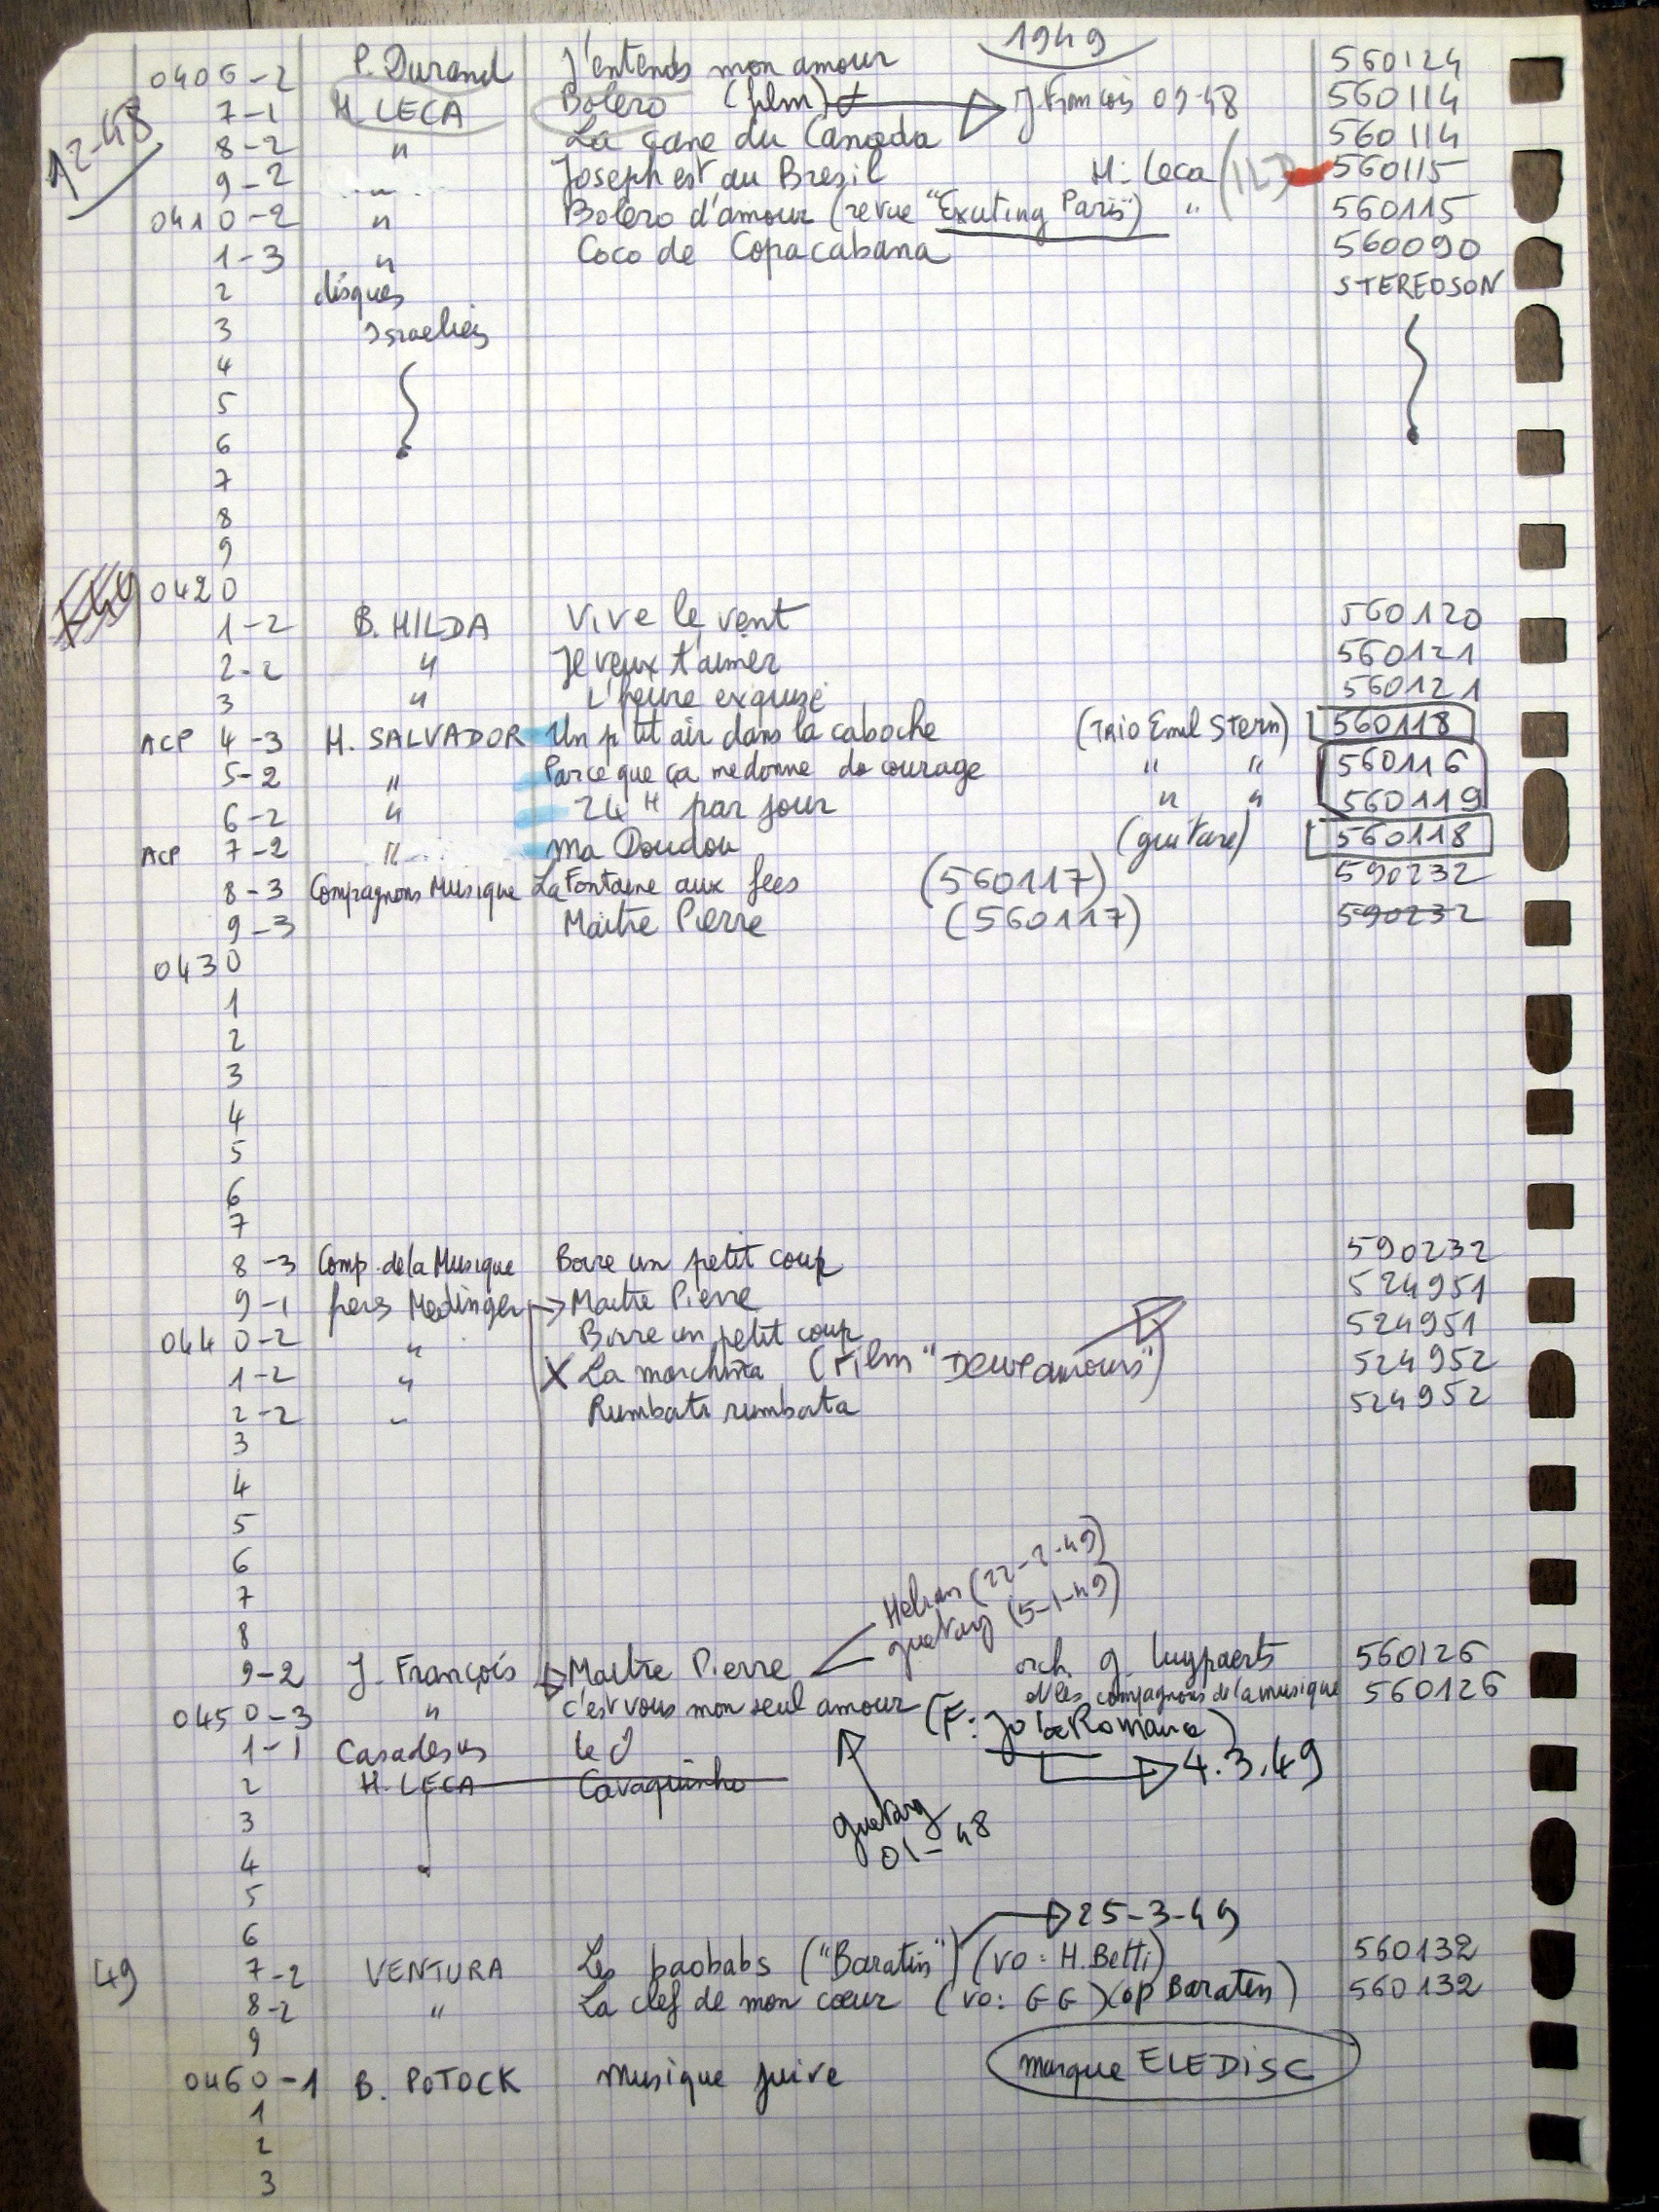 1949
0406-2 P. Durand J'entends mon amour 560124
12-48
7-1 H. LECA Bolero (film) J. François 09-48 560114
8-2 " La cane du Canada 560114
9-2 " Joseph est au Bresil H. Leca 560115
0410-2 " Bolero d'amour (revue "Exciting Paris") " 560115
1-3 " Coco de Copacabana 560090
2 disques STEREOSON
3 Israeliens
4
5
6
7
8
9
0420
1-2 B. HILDA Vive le vent 560120
2-2 " Je veux t'aimer 560121
3 " L'heure exquise 560121
ACP 4-3 H. SALVADOR Un p'tit air dans la caboche (TRIO Emil Stern) 560118
5-2 " Parce que ça me donne do courage " " 560116
6-2 " 24 H par jour " " 560119
ACP 7-2 " Ma Doudou (guitare) 560118
8-3 Compagnons Musique La Fontaine aux fees (560117) 590232
9-3 Maitre Pierre (560117) 590232
0430
1
2
3
4
5
6
7
8-3 Comp. de la Musique Boire un petit coup 590232
9-1 freres Medinger Maitre Pierre 524951
0440-2 " Boire un petit coup 524951
1-2 " X La marchina (Film "Deux amours") 524952
2-2 " Rumbati rumbata 524952
3
4
5
6
7
8
Helian (22-2-49)
guetary (5-1-49)
9-2 J. François Maitre Pierre orch. g. luypaerts 560126
0450-3 " c'est vous mon seul amour et les compagnons de la musique 560126
(F: Jo la Romance) 4.3.49
1-1 Casadesus le
2 H. LECA Cavaquinho
3
guetary 01-48
4
5
6 25-3-49
49 7-2 VENTURA Les baobabs ("Baratin") (vo: H. Betti) 560132
8-2 " La clef de mon cœur (vo: GG) (op Baratin) 560132
9
0460-1 B. POTOCK Musique juive marque ELEDISC
1
2
3